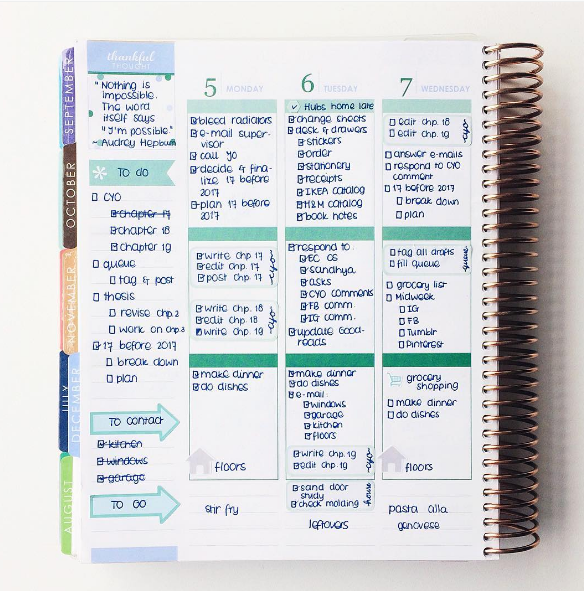 thankful
THOUGHT
"Nothing is
impossible.
The word
itself says
"I'm possible."
~Audrey Hepburn
TO DO
CYO
chapter 17
chapter 18
chapter 19
queue
tag & post
thesis
revise chp.2
work on chp.3
17 before 2017
break down
plan
TO CONTACT
kitchen
windows
garage
TO GO
SEPTEMBER
OCTOBER
NOVEMBER
JULY
DECEMBER
AUGUST
5 MONDAY
bleed radiators
e-mail super-
visor
call yo
decide & fina-
lize 17 before
2017
plan 17 before
2017
write chp. 17
edit chp. 17
post chp. 17
cyo
write chp. 18
edit chp. 18
write chp. 19
cyo
make dinner
do dishes
floors
stir fry
6 TUESDAY
Hubs home late
change sheets
desk & drawers
stickers
order
stationery
receipts
IKEA catalog
H&M catalog
book notes
respond to:
EC GS
Sandhya
asks
CYO comments
FB comm.
IG comm.
update Good-
reads
make dinner
do dishes
e-mail:
windows
garage
kitchen
floors
write chp. 19
edit chp. 19
cyo
sand door
study
check molding
house
leftovers
7 WEDNESDAY
edit chp. 18
edit chp. 19
cyo
answer e-mails
respond to CYO
comment
17 before 2017
break down
plan
tag all drafts
fill queue
queue
grocery list
Midweek
IG
FB
Tumblr
Pinterest
grocery
shopping
make dinner
do dishes
floors
pasta alla
genovese